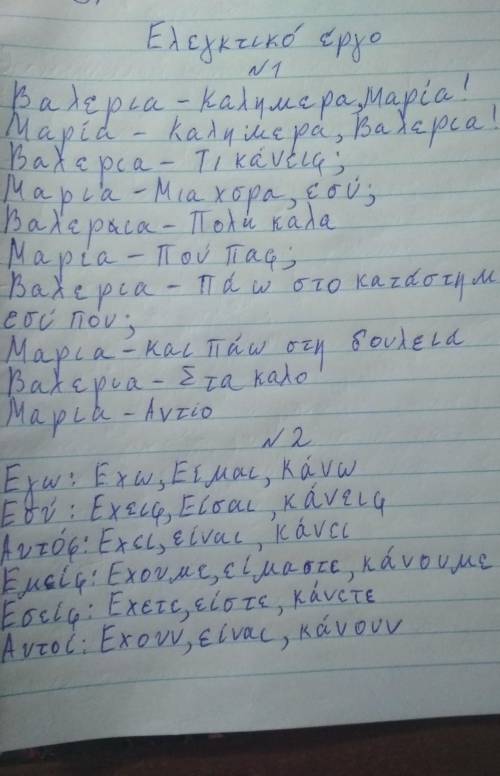 Ελεγκτικό έργο
N1
Βαλερια - Καλημερα, Μαρία!
Μαρία - Καλημερα, Βαλερια!
Βαλερια - Τι κάνεις;
Μαρια - Μια χορα, εσύ;
Βαλερια - Πολυ καλα
Μαρία - Πού πας;
Βαλερια - Πάω στο κατάστημ
εσύ που;
Μαρια - Και πάω στη δουλεια
Βαλερια - Στα καλο
Μαρια - Αντίο
N2
Εγω: Εχω, Είμαι, κάνω
Εσύ: Εχεις, Είσαι, κάνεις
Αυτός: Εχει, είναι, κάνει
Εμείς: Εχουμε, είμαστε, κάνουμε
Εσείς: Εχετε, είστε, κάνετε
Αυτοί: Εχουν, είναι, κάνουν